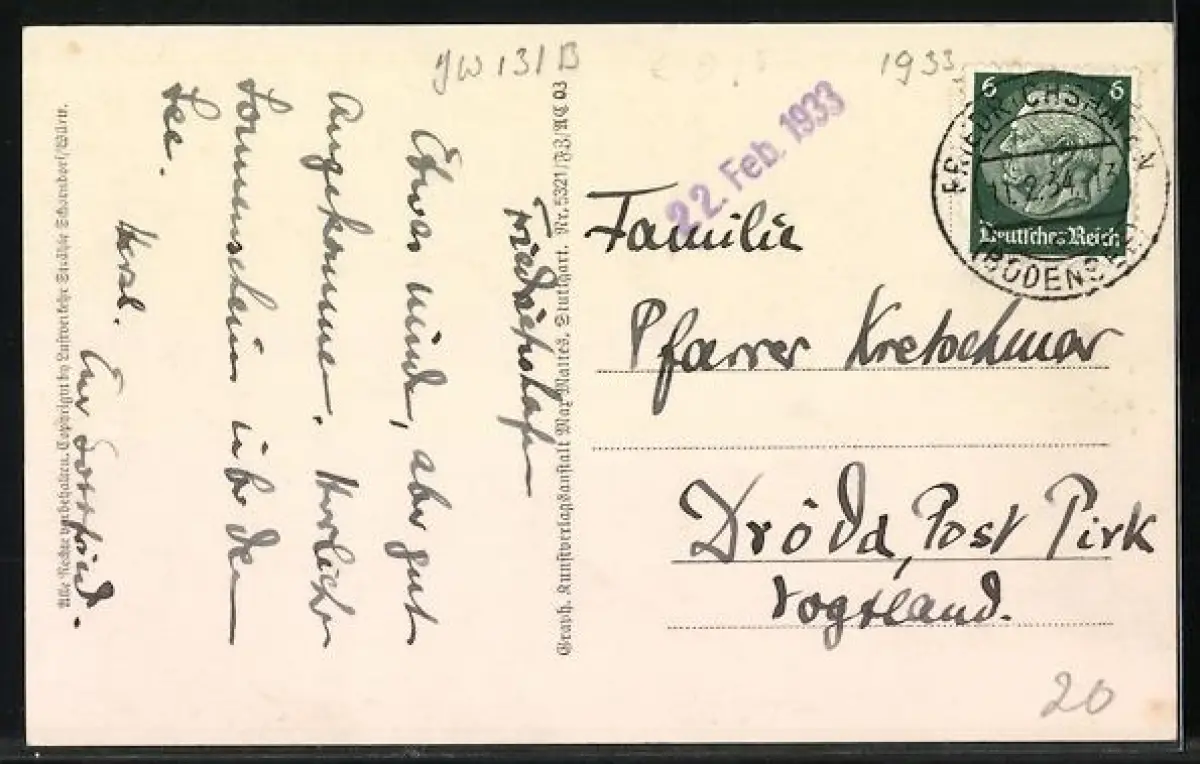 JW 131 B
1933
22. Feb. 1933
6 6
Deutsches Reich
FRIEDRICHSHAFEN
.9.34
(BODENSEE)
Friedrichshafen
Etwas müde, aber gut
Angekommen. Herrlicher
Sonnenschein über dem
See.
Herzl.
Euer Gottfried.
Familie
Pfarrer Kretschmar
Dröda, Post Pirk
Vogtland.
Graph. Kunstverlagsanstalt Max Mattes, Stuttgart. Nr. 5321/FB/AC 03
Alle Rechte vorbehalten. Copyright by Luftverkehr Strähle Schorndorf/Würt.
20